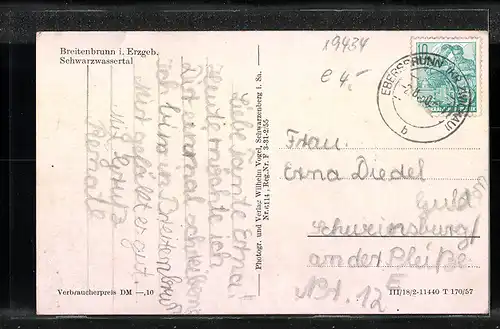 Breitenbrunn i. Erzgeb.
Schwarzwassertal
19434
e 4,-
10
EBERSBRUNN (über ZWICKAU)
b
Liebe Tante Erna!
Heute möchte ich
Dir einmal schreiben
ich bin in Breitenbrunn
Mir gefällt es gut.
Mit Gruß
Renate
Photogr. und Verlag Wilhelm Vogel, Schwarzenberg i. Sa.
Nr. 6114, Reg.Nr. F 3-31-2/55
Frau.
Erna Diedel
Schweinsburg/
an der Pleiße
Nr. 12
Verbraucherpreis DM —,10
III/18/2-11440 T 170/57